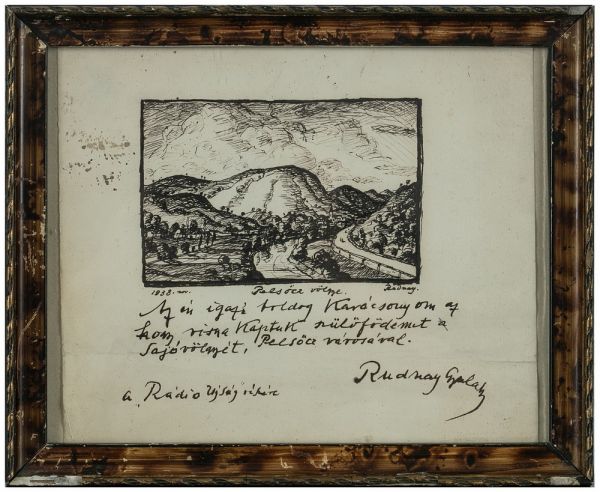 1938. nov. Pelsőcz völgye. Rudnay.
Az én igazi boldog Karácsonyom az
hogy vissza kaptuk szülőfödemet a
Sajóvölgyét, Pelsőcz városával.
Rudnay Gyula
a "Rádió Ujság" részére